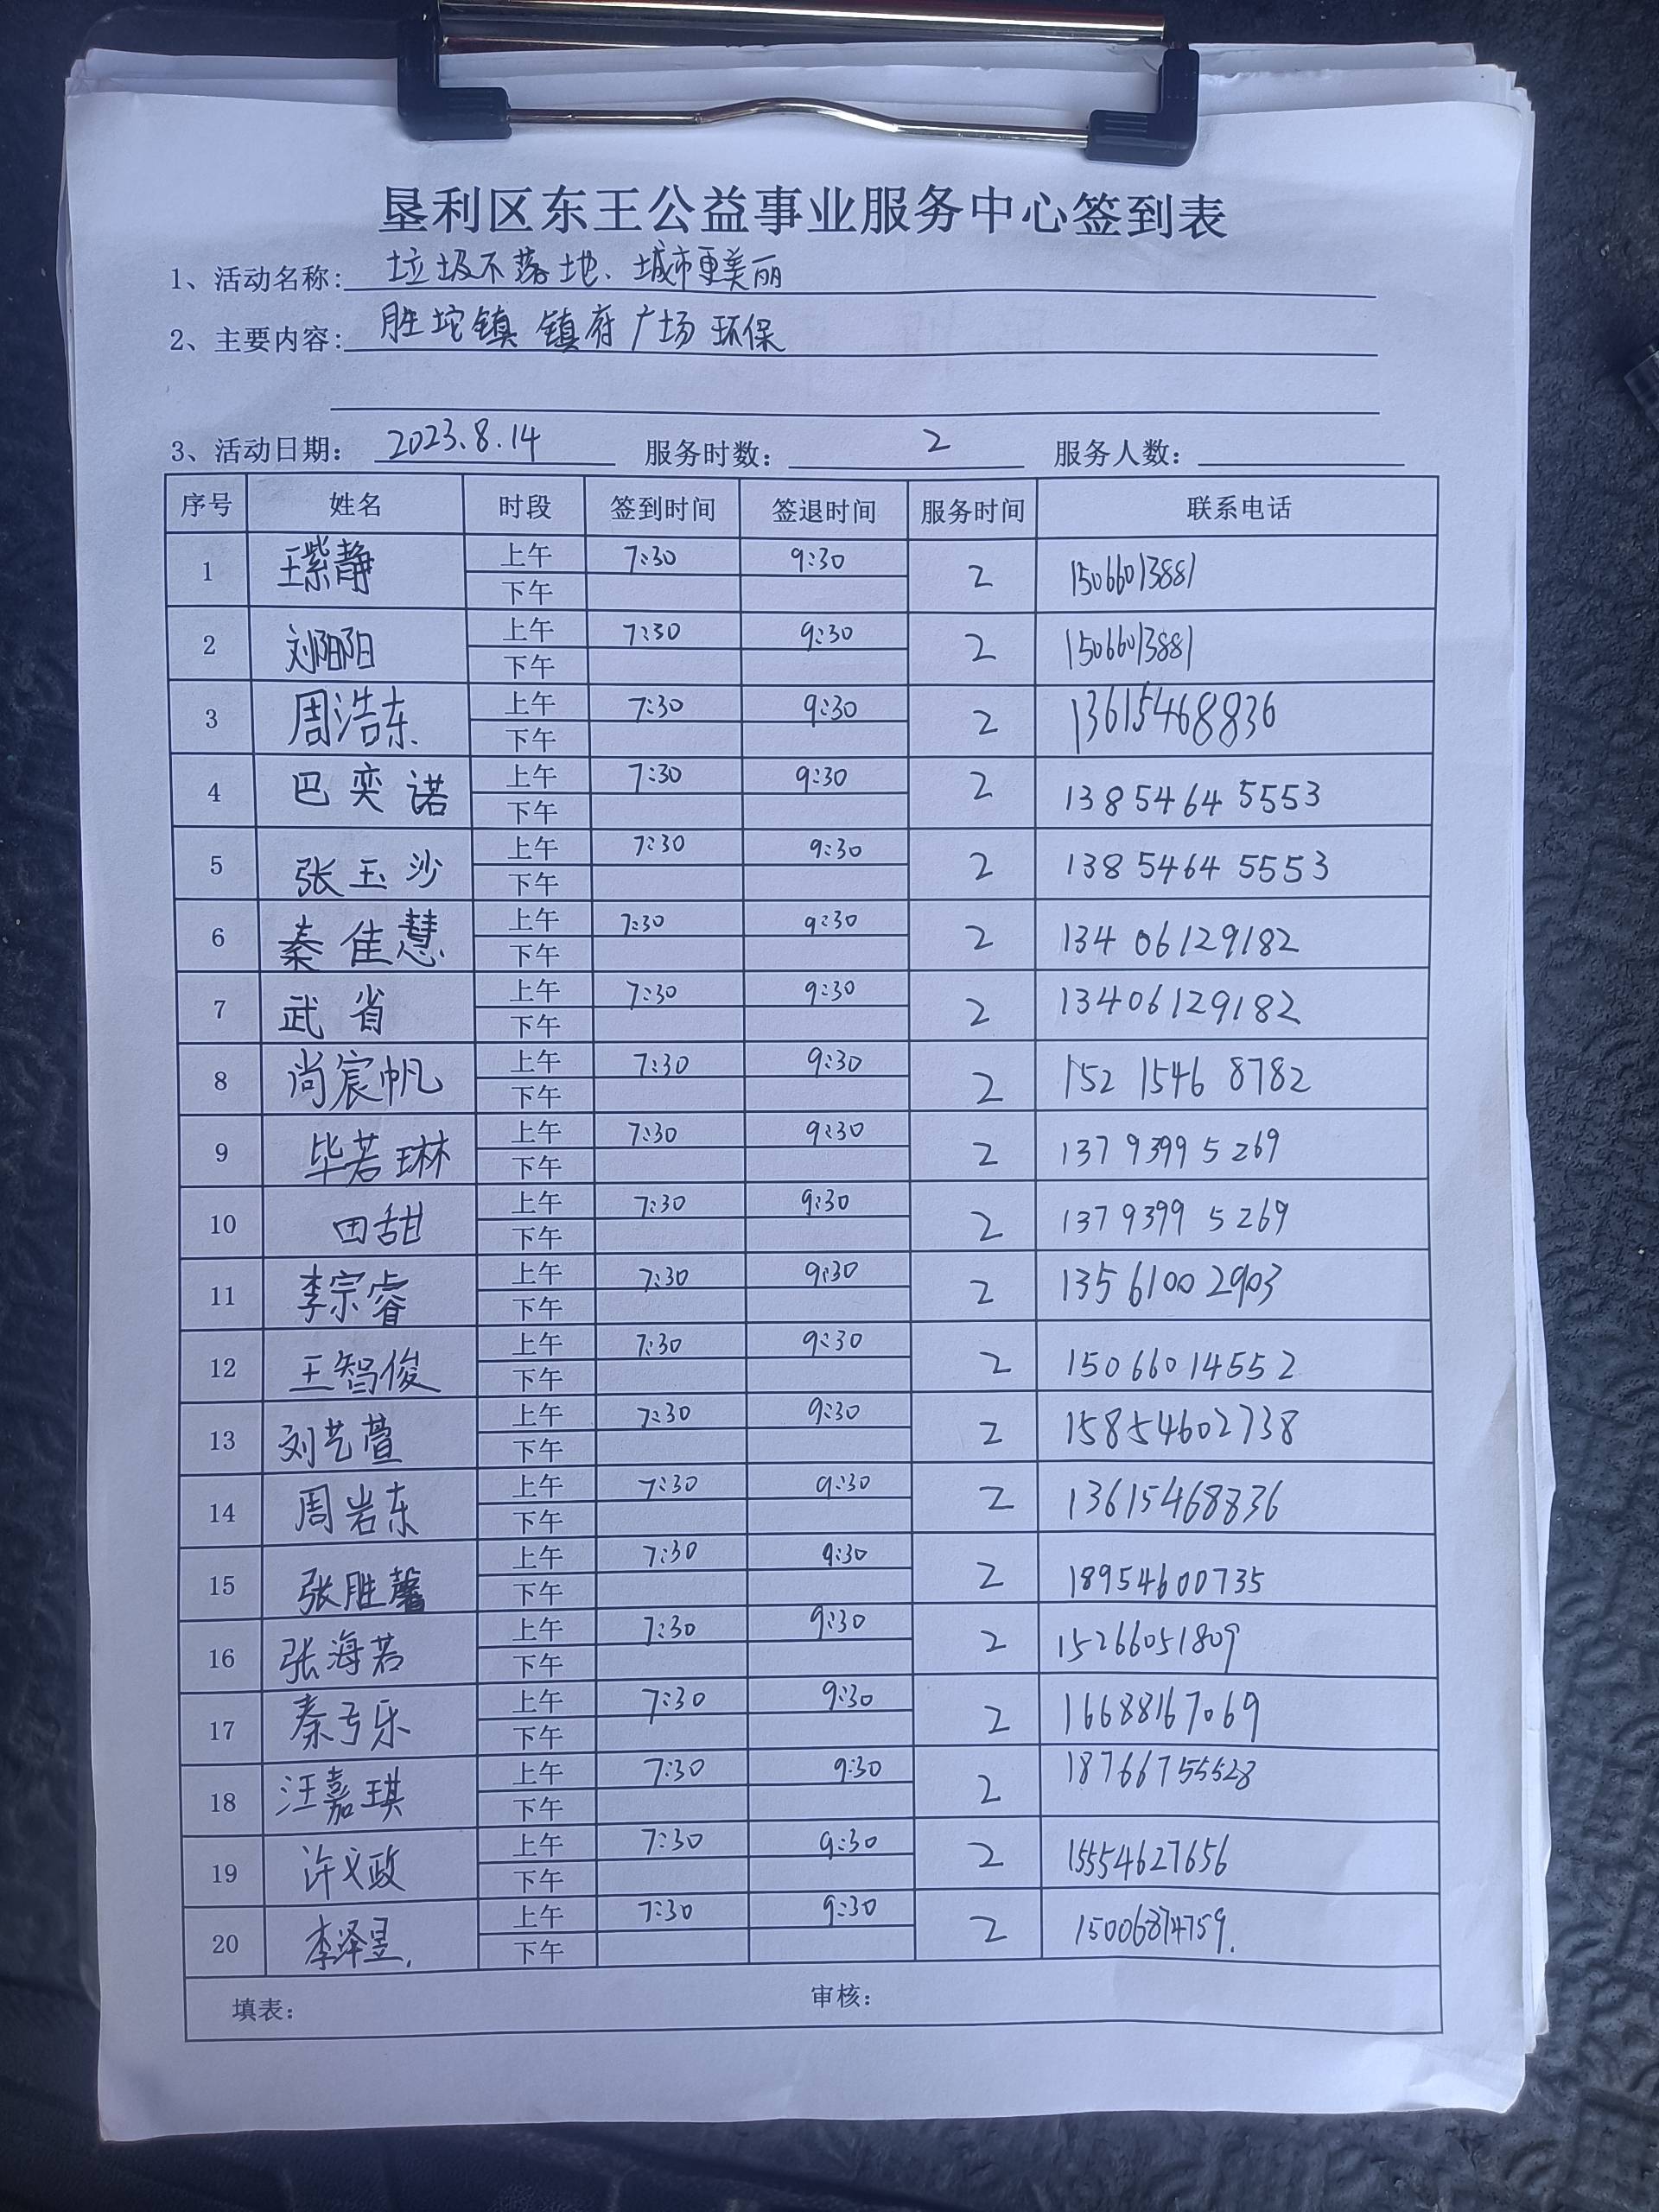 垦利区东王公益事业服务中心签到表
1、活动名称: 垃圾不落地、城市更美丽
2、主要内容: 胜坨镇 镇府广场 环保
3、活动日期: 2023.8.14 服务时数: 2 服务人数:
序号 姓名 时段 签到时间 签退时间 服务时间 联系电话
1 王紫静 上午 7:30 9:30 2 15066013881
下午
2 刘阳阳 上午 7:30 9:30 2 15066013881
下午
3 周浩东 上午 7:30 9:30 2 13615468836
下午
4 巴奕诺 上午 7:30 9:30 2 13854645553
下午
5 张玉沙 上午 7:30 9:30 2 13854645553
下午
6 秦佳慧 上午 7:30 9:30 2 13406129182
下午
7 武省 上午 7:30 9:30 2 13406129182
下午
8 尚宸帆 上午 7:30 9:30 2 152 1546 8782
下午
9 毕若琳 上午 7:30 9:30 2 137 9399 5269
下午
10 田甜 上午 7:30 9:30 2 137 9399 5269
下午
11 李宗睿 上午 7:30 9:30 2 135 6100 2903
下午
12 王智俊 上午 7:30 9:30 2 15066014552
下午
13 刘艺萱 上午 7:30 9:30 2 15854602738
下午
14 周岩东 上午 7:30 9:30 2 13615468836
下午
15 张胜馨 上午 7:30 9:30 2 18954600735
下午
16 张海若 上午 7:30 9:30 2 15266051809
下午
17 秦乐 上午 7:30 9:30 2 16688167069
下午
18 汪嘉琪 上午 7:30 9:30 2 18766755528
下午
19 许义政 上午 7:30 9:30 2 15554627656
下午
20 李泽昱. 上午 7:30 9:30 2 15006874759.
下午
填表: 审核: